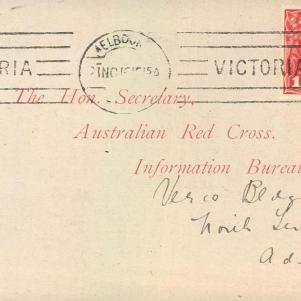 MELBOU
RIA VICTORIA
1
The Hon. Secretary,
Australian Red Cross.
Information Bureau
Verco Bldg
North Ter
Ad